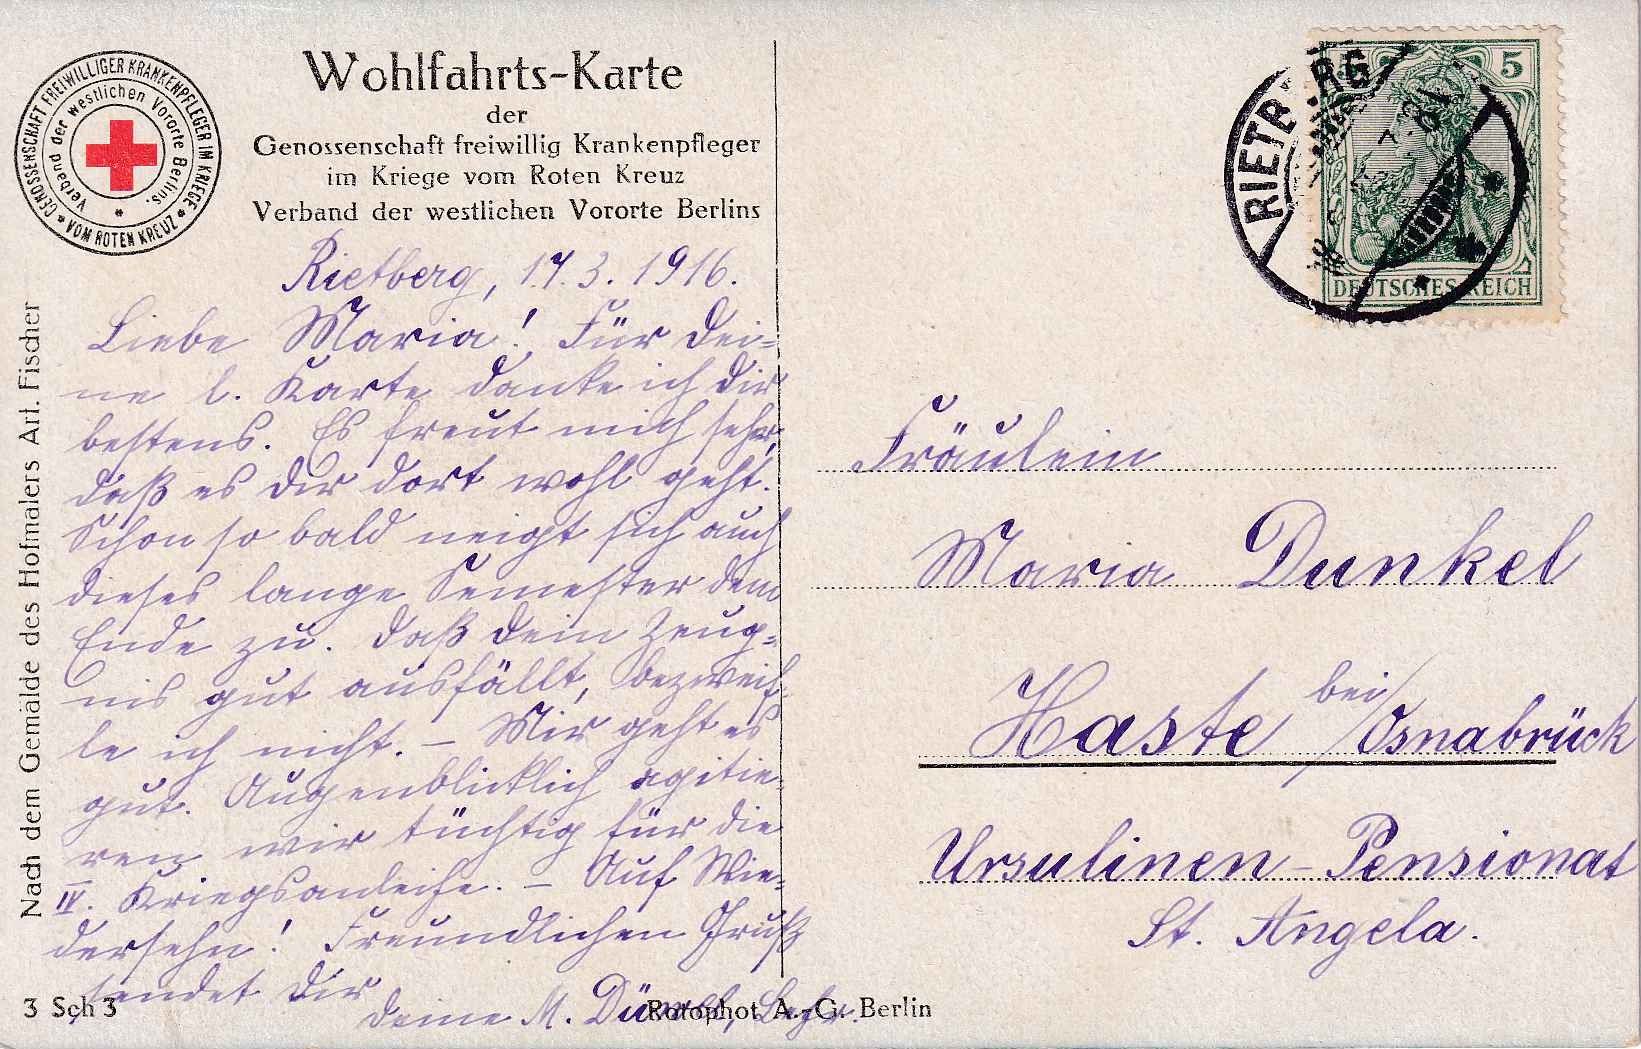 GENOSSENSCHAFT FREIWILLIGER KRANKENPFLEGER IM KRIEGE * VOM ROTEN KREUZ *
Verband der westlichen Vororte Berlins. *
Wohlfahrts-Karte
der
Genossenschaft freiwillig Krankenpfleger
im Kriege vom Roten Kreuz
Verband der westlichen Vororte Berlins
Rietberg, 17.3.1916.
Liebe Maria! Für dei-
ne l. Karte danke ich dir
bestens. Es freut mich sehr,
daß es dir dort wohl geht.
Schon so bald neigt sich auch
dieses lange Semester dem
Ende zu. Daß dein Zeug-
nis gut ausfällt, bezweif-
le ich nicht. – Mir geht es
gut. Augenblicklich agitie-
ren wir tüchtig für die
IV. Kriegsanleihe. – Auf Wie-
dersehn! Freundlichen Gruß
sendet dir
deine M.
Nach dem Gemälde des Hofmalers Art. Fischer
3 Sch 3
Rotophot A.-G. Berlin
5
DEUTSCHES REICH
RIETBERG
Fräulein
Maria Dunkel
Haste bei/Osnabrück
Ursulinen-Pensionat
St. Angela.